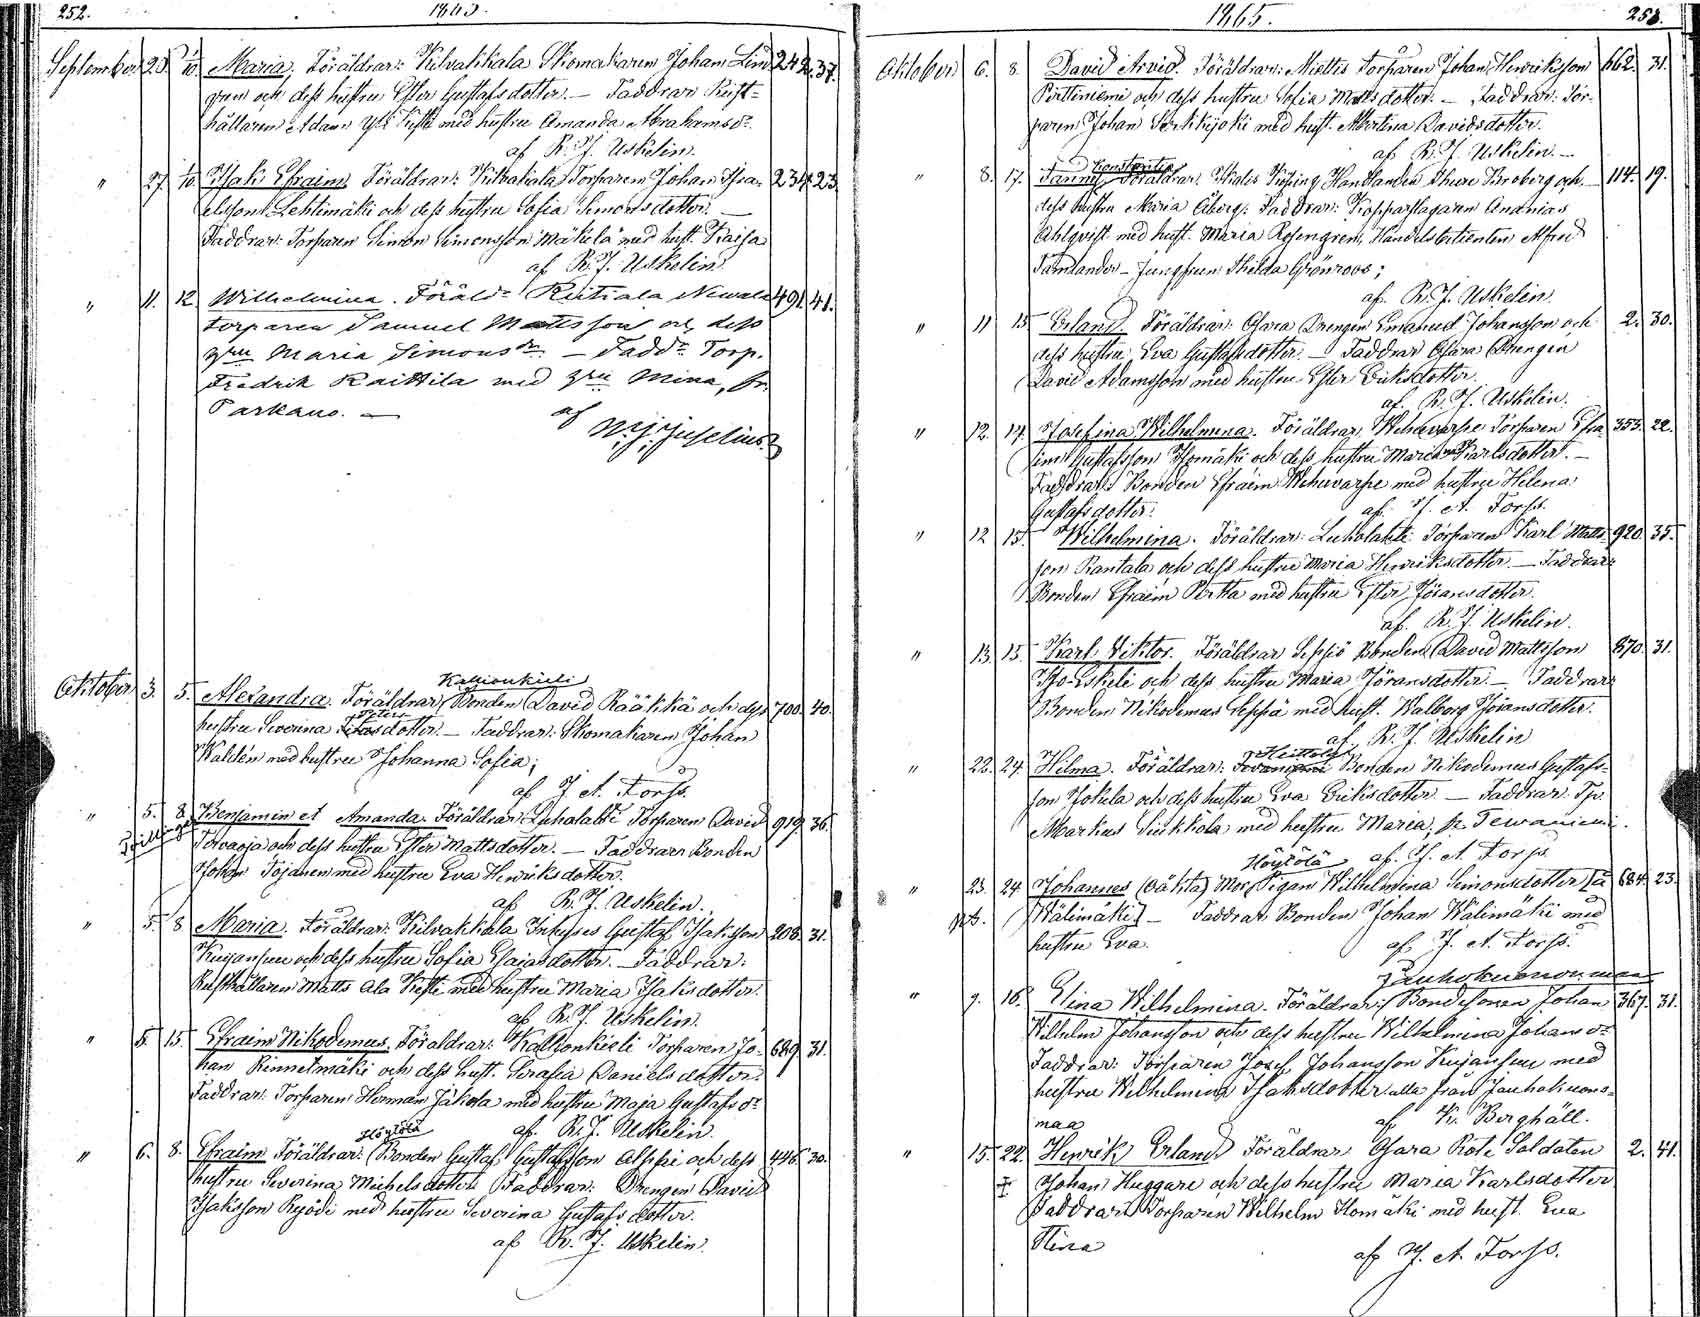 252.
1865.
September 28. 1/10. Maria, Föräldrar: Kilvakkala Skomakaren Johan Lind- 242. 37.
gren och dess hustru Ester Gustafsdotter. — Faddrar Rust-
hållaren Adam Yli Kesti med hustru Amanda Abrahamsdr.
af R. J. Uskelin.
" 27. 1/10. Isak Efraim. Föräldrar: Kilvakkala Torparen Johan Isra- 234. 23.
elsson Lehtimäki och dess hustru Sofia Simonsdotter. —
Faddrar: Torparen Simon Simonsson Mäkelä med hust. Kaisa
af R. J. Uskelin
" 11. 12. Wilhelmina. Föräldr Riitiala Newala 491. 41.
torparen Samuel Mattsson och dess
hru Maria Simonsdr — Faddr Torp.
Fredrik Raittila med hru Mina, fr.
Parkano. — af
N. J. Juselius
Oktober 3. 5. Alexandra. Föräldrar Kallionkieli Bonden David Rääkkä och dess 700. 40.
hustru Severina dotter. — Faddrar: Skomakaren Johan
Waldén med hustru Johanna Sofia;
af J. A. Forss.
" 5. 8. Benjamin et Amanda. Föräldrar: Luhalahti Torparen David 919. 36.
Tvillingar
Torvaoja och dess hustru Ester Mattsdotter. — Faddrar Bonden
Johan Tojanen med hustru Eva Henriksdotter.
af R. J. Uskelin.
" 5. 8 Maria. Föräldrar: Kilvakkala Inhyses Gustaf Isaksson 208. 31.
Kujanpuu och dess hustru Sofia Esaiasdotter. — Faddrar:
Rusthållaren Matts Ala Kesti med hustru Maria Isaksdotter.
af R. J. Uskelin.
" 5. 15. Efraim Nikodemus. Föräldrar: Kallionkieli Torparen Jo- 689. 31.
han Rinnetmäki och dess hust. Serafia Danielsdotter.
Faddrar: Torparen Herman Jakola med hustru Maja Gustafsdr
af R. J. Uskelin.
" 6. 8. Efraim Föräldrar: Höytölä Bonden Gustaf Gustafsson Alppi och dess 446. 30.
hustru Severina Michelsdotter Faddrar: Drengen David
Isaksson Ryödi med hustru Severina Gustafsdotter.
af R. J. Uskelin.
1865.
253.
Oktober 6. 8. David Arvid. Föräldrar: Miettis torparen Johan Henriksson 662. 31.
Perttiniemi och dess hustru Sofia Mattsdotter. — Faddrar: Tor-
paren Johan Särkkijoki med hust. Albertina Davidsdotter.
af R. J. Uskelin. —
" 8. 17. Fanny Konstantia Föräldrar: Ikalis Köping Handlanden Thure Broberg och 114. 19.
dess hustru Maria Åberg: Faddrar: Kopparslagaren Ananias
Ahlqvist med hust. Maria Rosengren, Handelsbetjenten Alfred
Tamlander – Jungfrun Hilda Grönroos;
af. R. J. Uskelin.
" 11 15. Erland. Föräldrar: Osara Drengen Emanuel Johansson och 2. 30.
dess hustru Eva Gustafsdotter. — Faddrar Osara Drengen
David Adamsson med hustru Ester Eriksdotter.
af. R. J. Uskelin.
" 12. 14. Josefina Wilhelmina. Föräldrar Wehuvarpe Torparen Efra- 353. 22.
im Gustafsson Isomäki och dess hustru Maria Karlsdotter. —
Faddrar: Bonden Efraim Wehuvarpe med hustru Helena
Gustafsdotter. af. J. A. Forss.
" 12 15. Wilhelmina. Föräldrar: Luhalahti Torparen Karl Matts- 920. 35.
son Rantala och dess hustru Maria Henriksdotter. — Faddrar:
Bonden Efraim Pertta med hustru Ester Jöransdotter.
af. R. J. Uskelin.
" 13. 15. Karl Viktor. Föräldrar Leppiö Bonden David Mattsson 870. 31.
Iso-Eskeli och dess hustru Maria Jöransdotter. — Faddrar:
Bonden Nikodemus Leppä med hust. Walborg Jöransdotter.
af R. J. Uskelin
" 22. 24. Hilma. Föräldrar: Heittola Bonden Nikodemus Gustafs-
son Jokela och dess hustru Eva Eriksdotter. — Faddrar: Tp.
Markus Siukkola med hustru Maria, fr Tewaniemi.
af. J. A. Forss
" 23. 24 Johannes (oäkta) Mor: Höytölä Pigan Wilhelmina Simonsdotter [å 684. 23.
Wälimäki] — Faddrar. Bonden Johan Wälimäki med
hustru Eva. af J. A. Forss.
Jauhokuononmaa
" 9. 16. Elina Wilhelmina. Föräldrar: Bondesonen Johan 367. 31.
Wilhelm Johansson och dess hustru Wilhelmina Johansdr
Faddrar: Torparen Josef Johansson Kujanpuu med
hustru Wilhelmina Isaksdotter alla från Jauhokuonon-
maa af K. Berghäll.
" 15. 22. Henrik Erland Föräldrar Osara Rote Soldaten 2. 41.
Johan Huggare och dess hustru Maria Karlsdotter
Faddrar: Torparen Wilhelm Homäki med hust. Eva
Stina
af J. A. Forss.